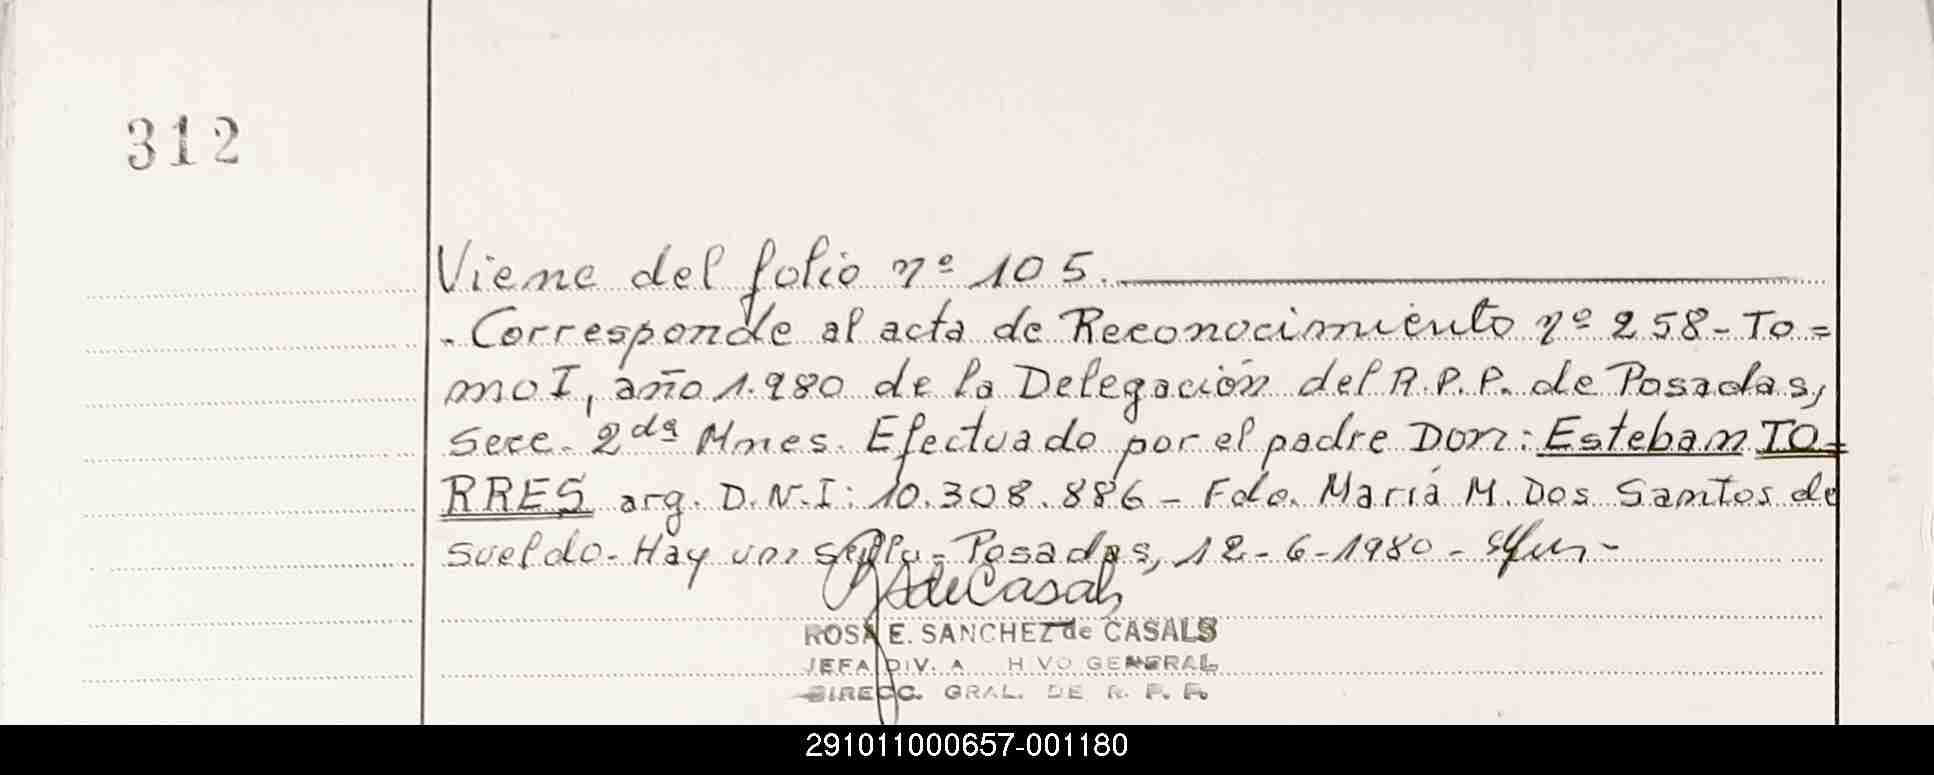 312
Viene del folio nº 105.
. Corresponde al acta de Reconocimiento nº 258 - To =
mo I, año 1.980 de la Delegación del R.P.P. de Posadas,
Secc. 2da Mnes. Efectuado por el padre Don: Esteban TO=
RRES arg. D.N.I: 10.308.886 - Fdo. María M. Dos Santos de
Sueldo - Hay un sello - Posadas, 12 - 6 - 1980 -
de Casals
ROSA E. SANCHEZ de CASALS
JEFA DIV. A HIVO GENERAL
DIRECC. GRAL. DE R. P. P.
291011000657-001180